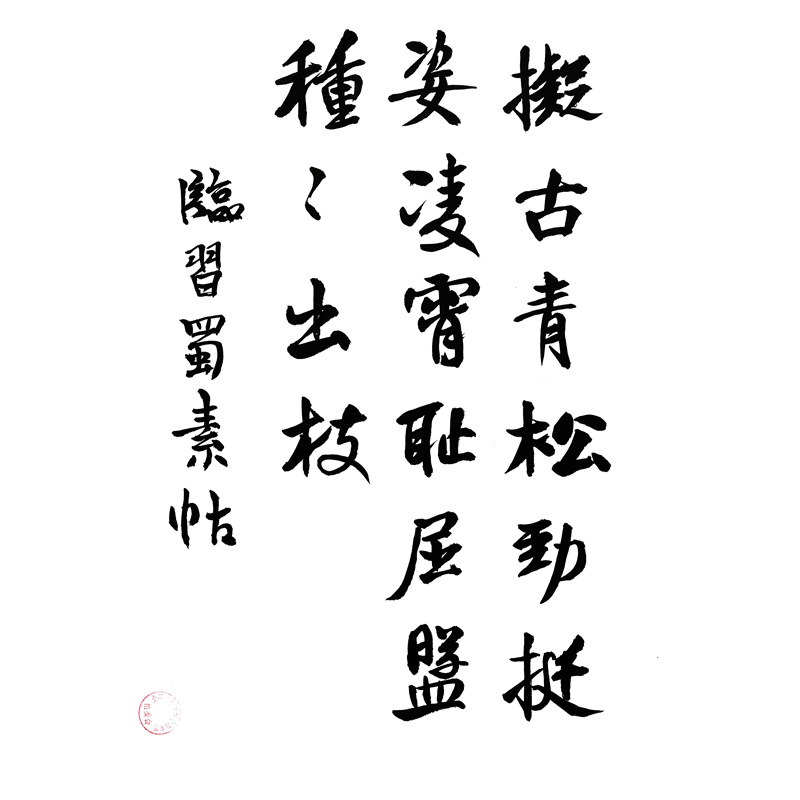 擬古青松勁挺
姿凌霄耻屈盤
種〻出枝
臨習蜀素帖